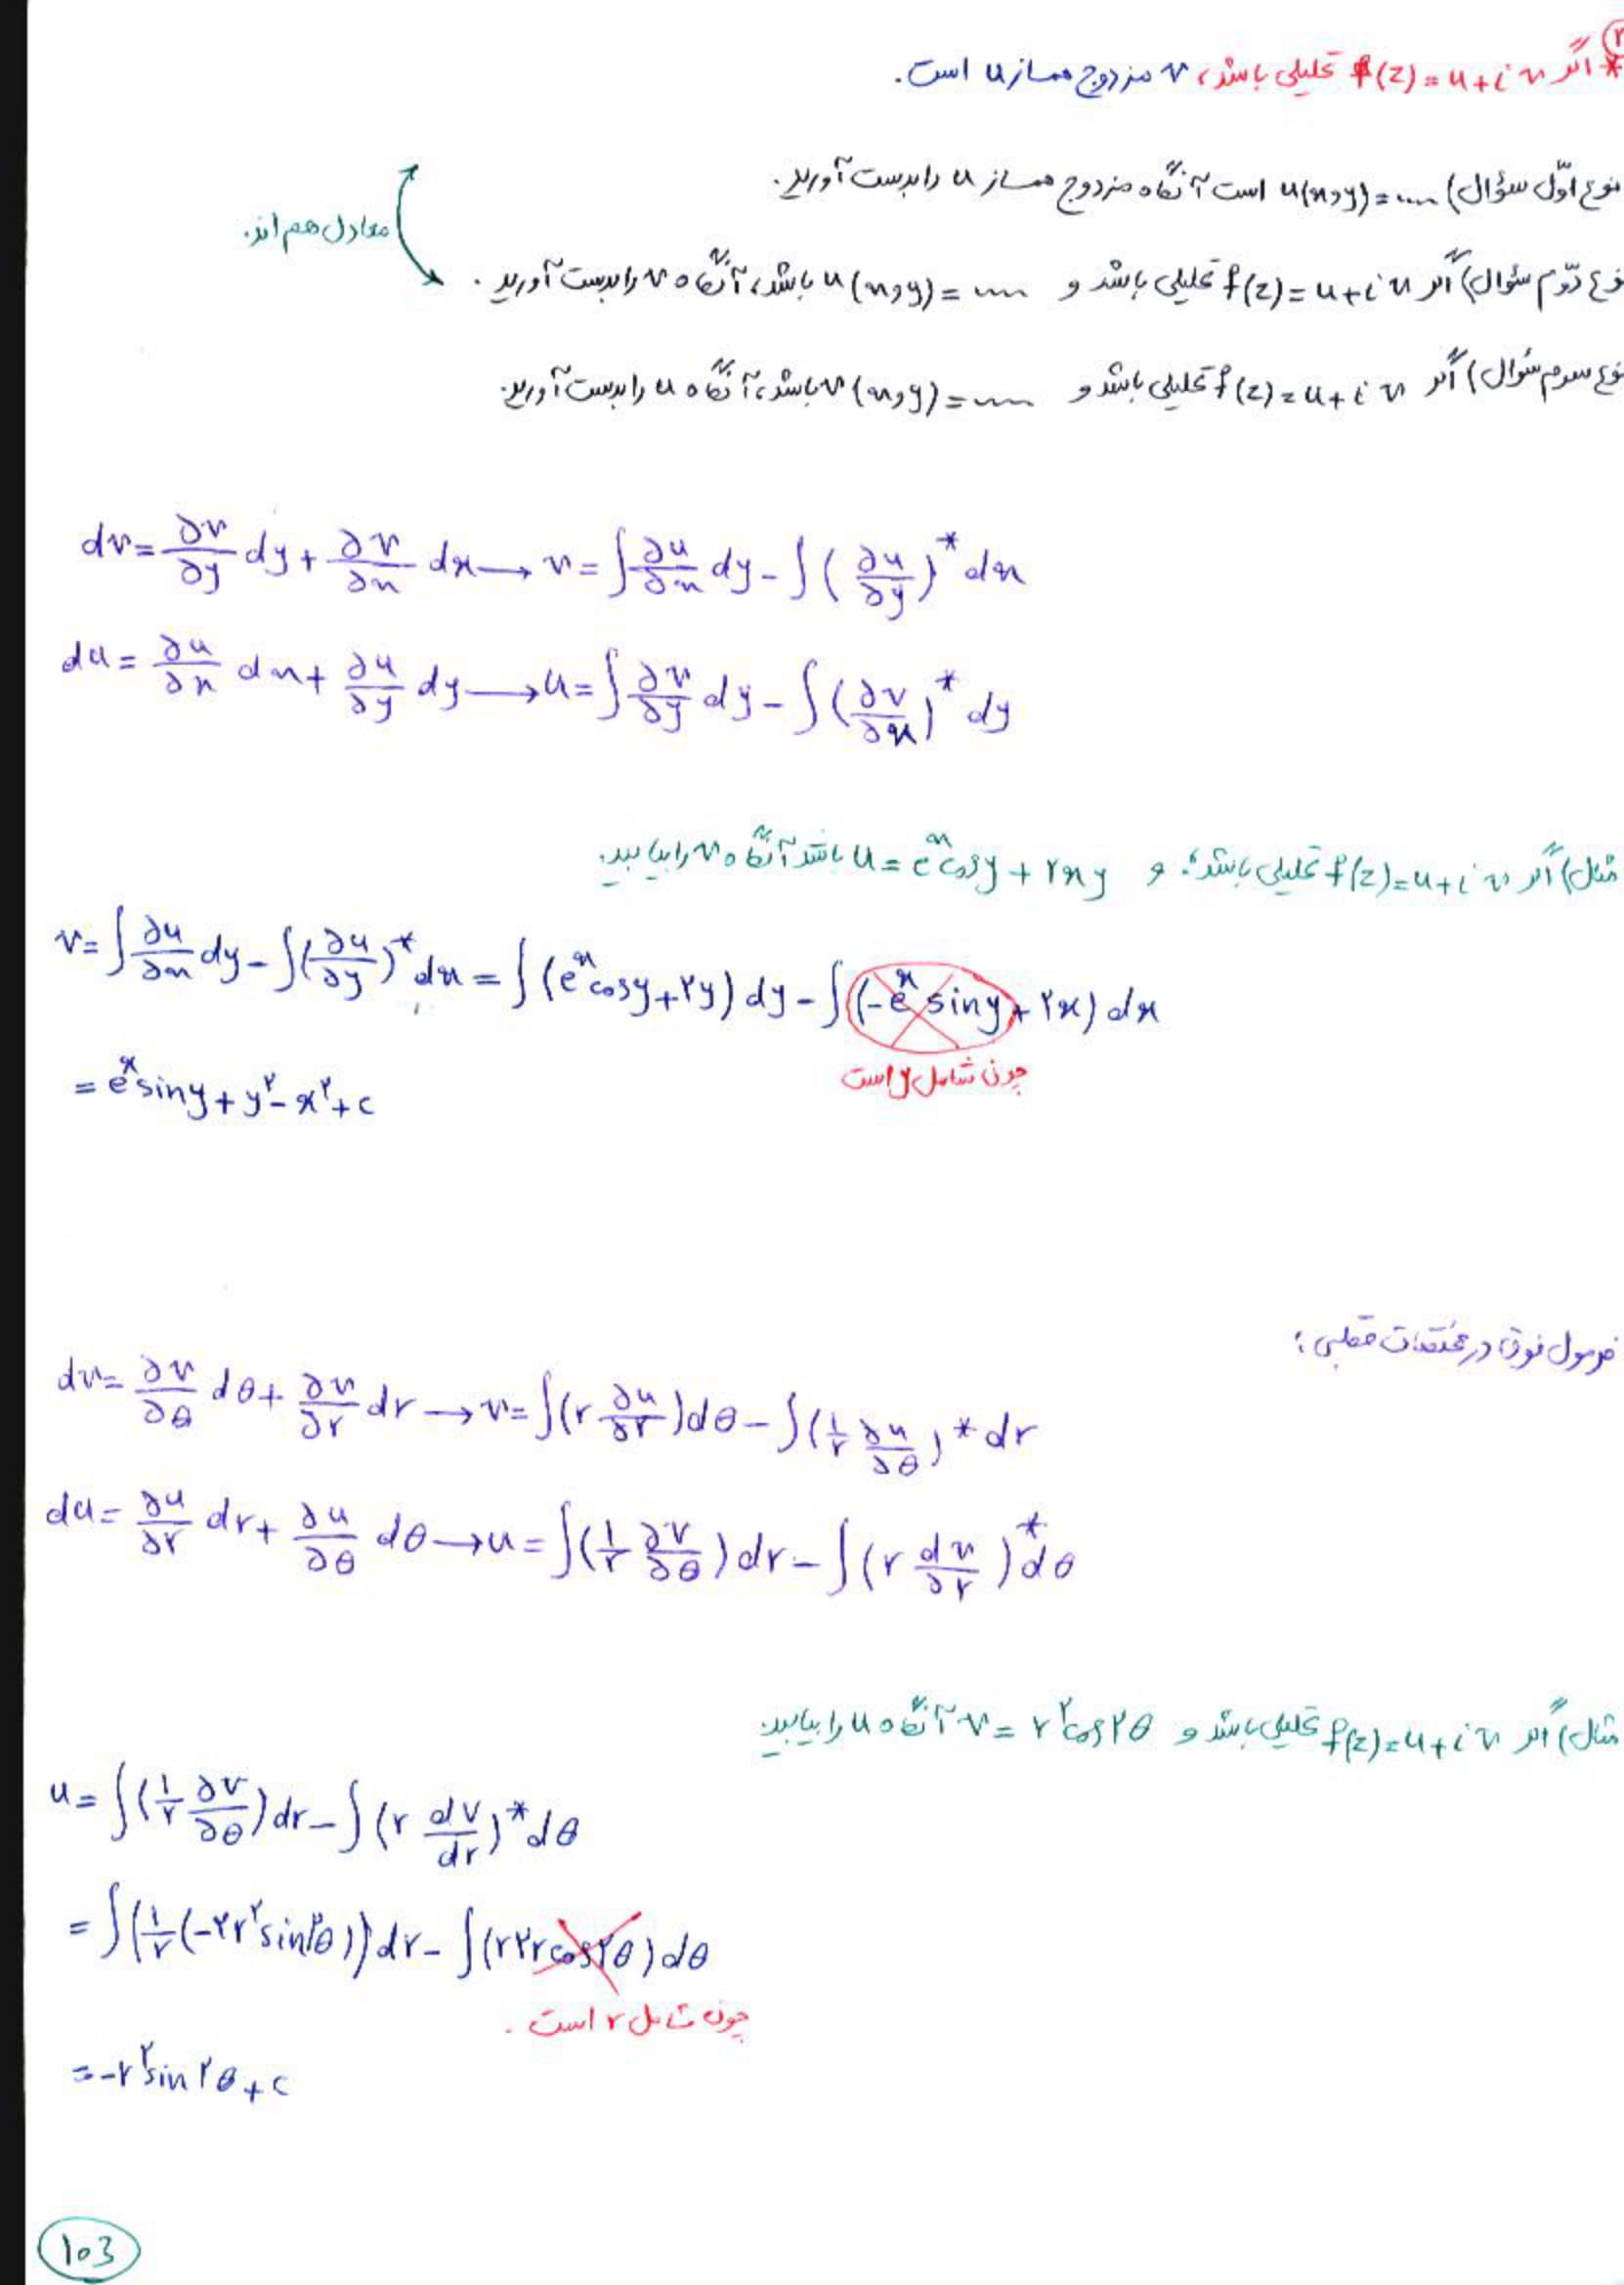 ۲
* اگر f(z) = u + i v تحلیلی باشد، v مزدوج همساز u است.
نوع اوّل سؤال) .... = u(x,y) است آنگاه مزدوج همساز u را بدست آورید.
نوع دوّم سؤال) اگر f(z) = u + i v تحلیلی باشد و .... = u(x,y) باشد، آنگاه v را بدست آورید.
معادل هم اند.
نوع سوم سؤال) اگر f(z) = u + i v تحلیلی باشد و .... = v(x,y) باشد، آنگاه u را بدست آورید.
dv = ∂v/∂y dy + ∂v/∂x dx → v = ∫ ∂u/∂x dy - ∫ (∂u/∂y)* dx
du = ∂u/∂x dx + ∂u/∂y dy → u = ∫ ∂v/∂y dy - ∫ (∂v/∂x)* dy
مثال) اگر f(z) = u + i v تحلیلی باشد؛ و u = e^x cosy + ۲xy باشد آنگاه v را بیابید.
v = ∫ ∂u/∂x dy - ∫ (∂u/∂y)* dx = ∫ (e^x cosy + ۲y) dy - ∫ (-e^x siny + ۲x) dx
چون شامل y است
= e^x siny + y^۲ - x^۲ + c
فرمول فوق در مختصات قطبی:
dv = ∂v/∂θ dθ + ∂v/∂r dr → v = ∫ (r ∂u/∂r) dθ - ∫ (1/r ∂u/∂θ)* dr
du = ∂u/∂r dr + ∂u/∂θ dθ → u = ∫ (1/r ∂v/∂θ) dr - ∫ (r dv/∂r)* dθ
مثال) اگر f(z) = u + i v تحلیلی باشد و v = r^۲ cos۲θ آنگاه u را بیابید.
u = ∫ (1/r ∂v/∂θ) dr - ∫ (r dv/dr)* dθ
= ∫ (1/r (-۲r^۲ sin۲θ)) dr - ∫ (r۲r cos۲θ) dθ
چون شامل r است.
= -r^۲ sin۲θ + c
103